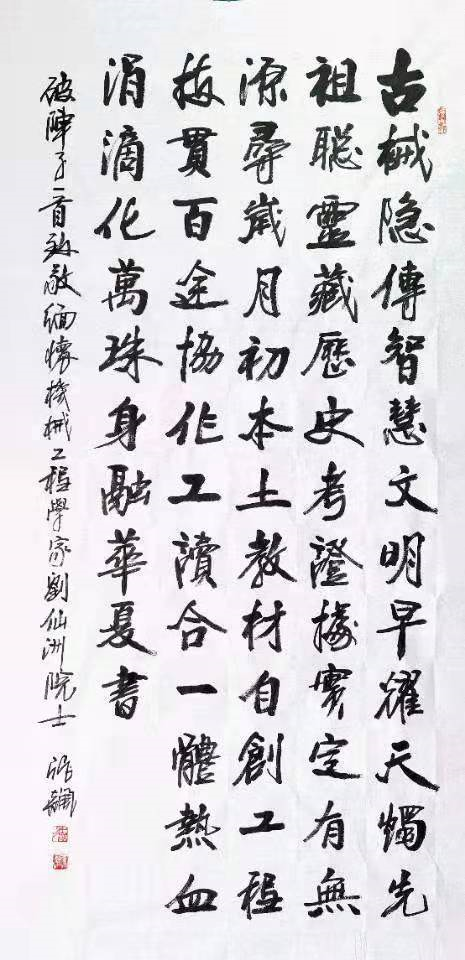 古械隐傳智慧文明早耀天燭先
祖聪靈藏歷史考證據實定有無
源尋歲月初本土教材自創工程
技貫百途協作工讀合一體熱血
涓滴化萬珠身融華夏書
破陣子一首致敬緬懷機械工程學家劉仙洲院士